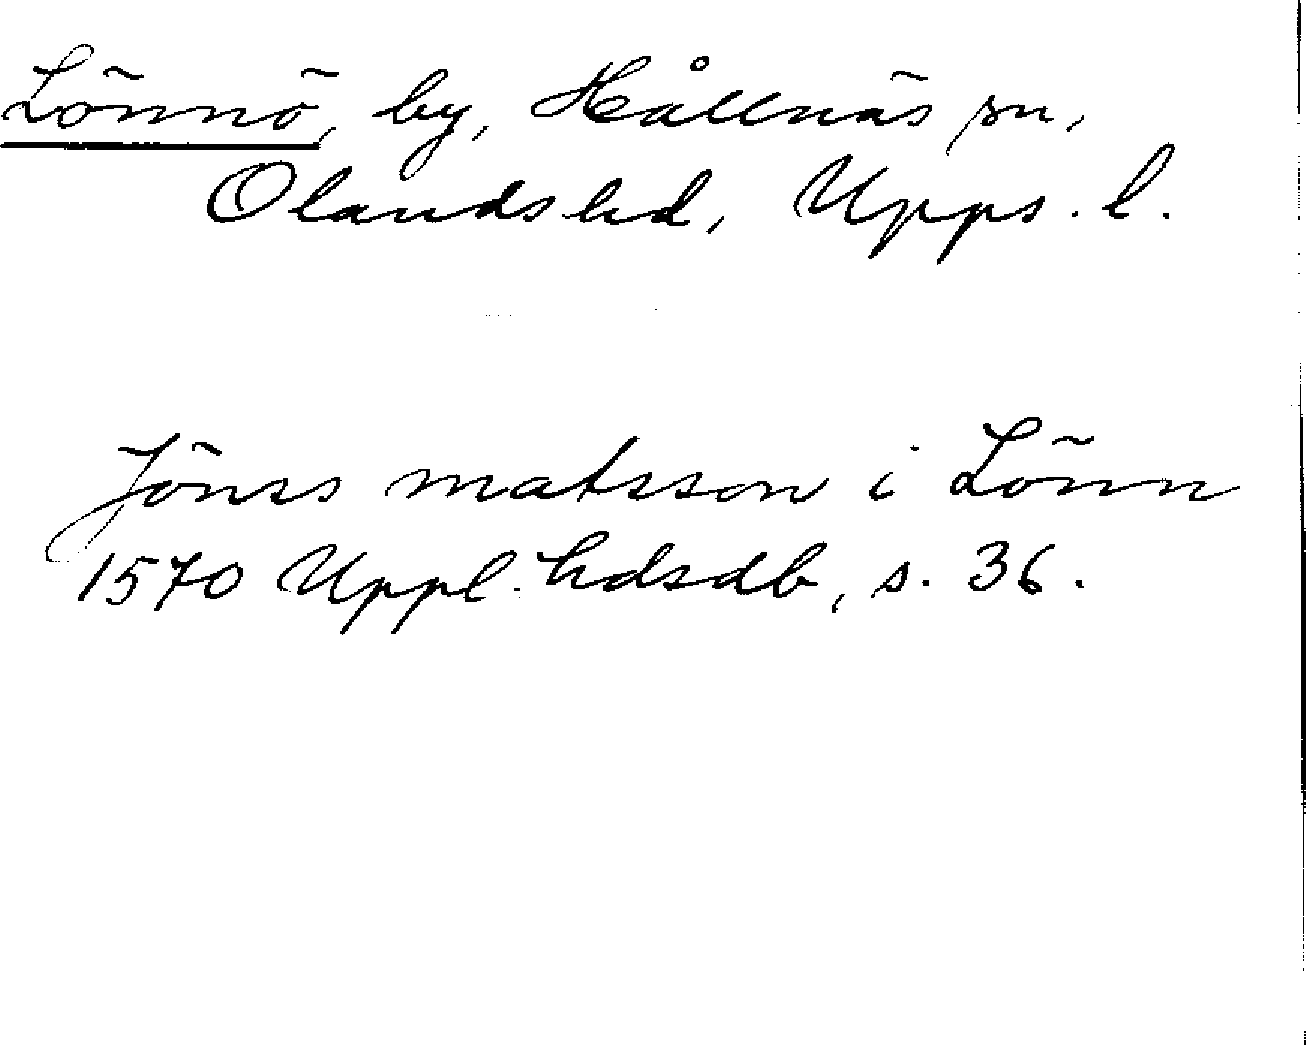 Lönnö, by, Hållnäs sn,
Olands hd, Upps. l.
Jönss matsson i Lönn
1570 Uppl. hdsdb, s. 36.